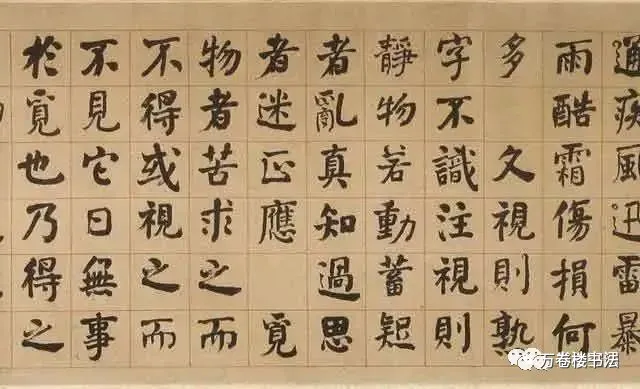 通疾風迅雷暴
雨酷霜傷損何
多 文視則熟
字不識注視則
靜物若動蓄疑
者亂真知過思
者迷正應 覓
物者苦求之而
不得或視之而
不見它日無事
於覓也乃得之
万卷楼书法